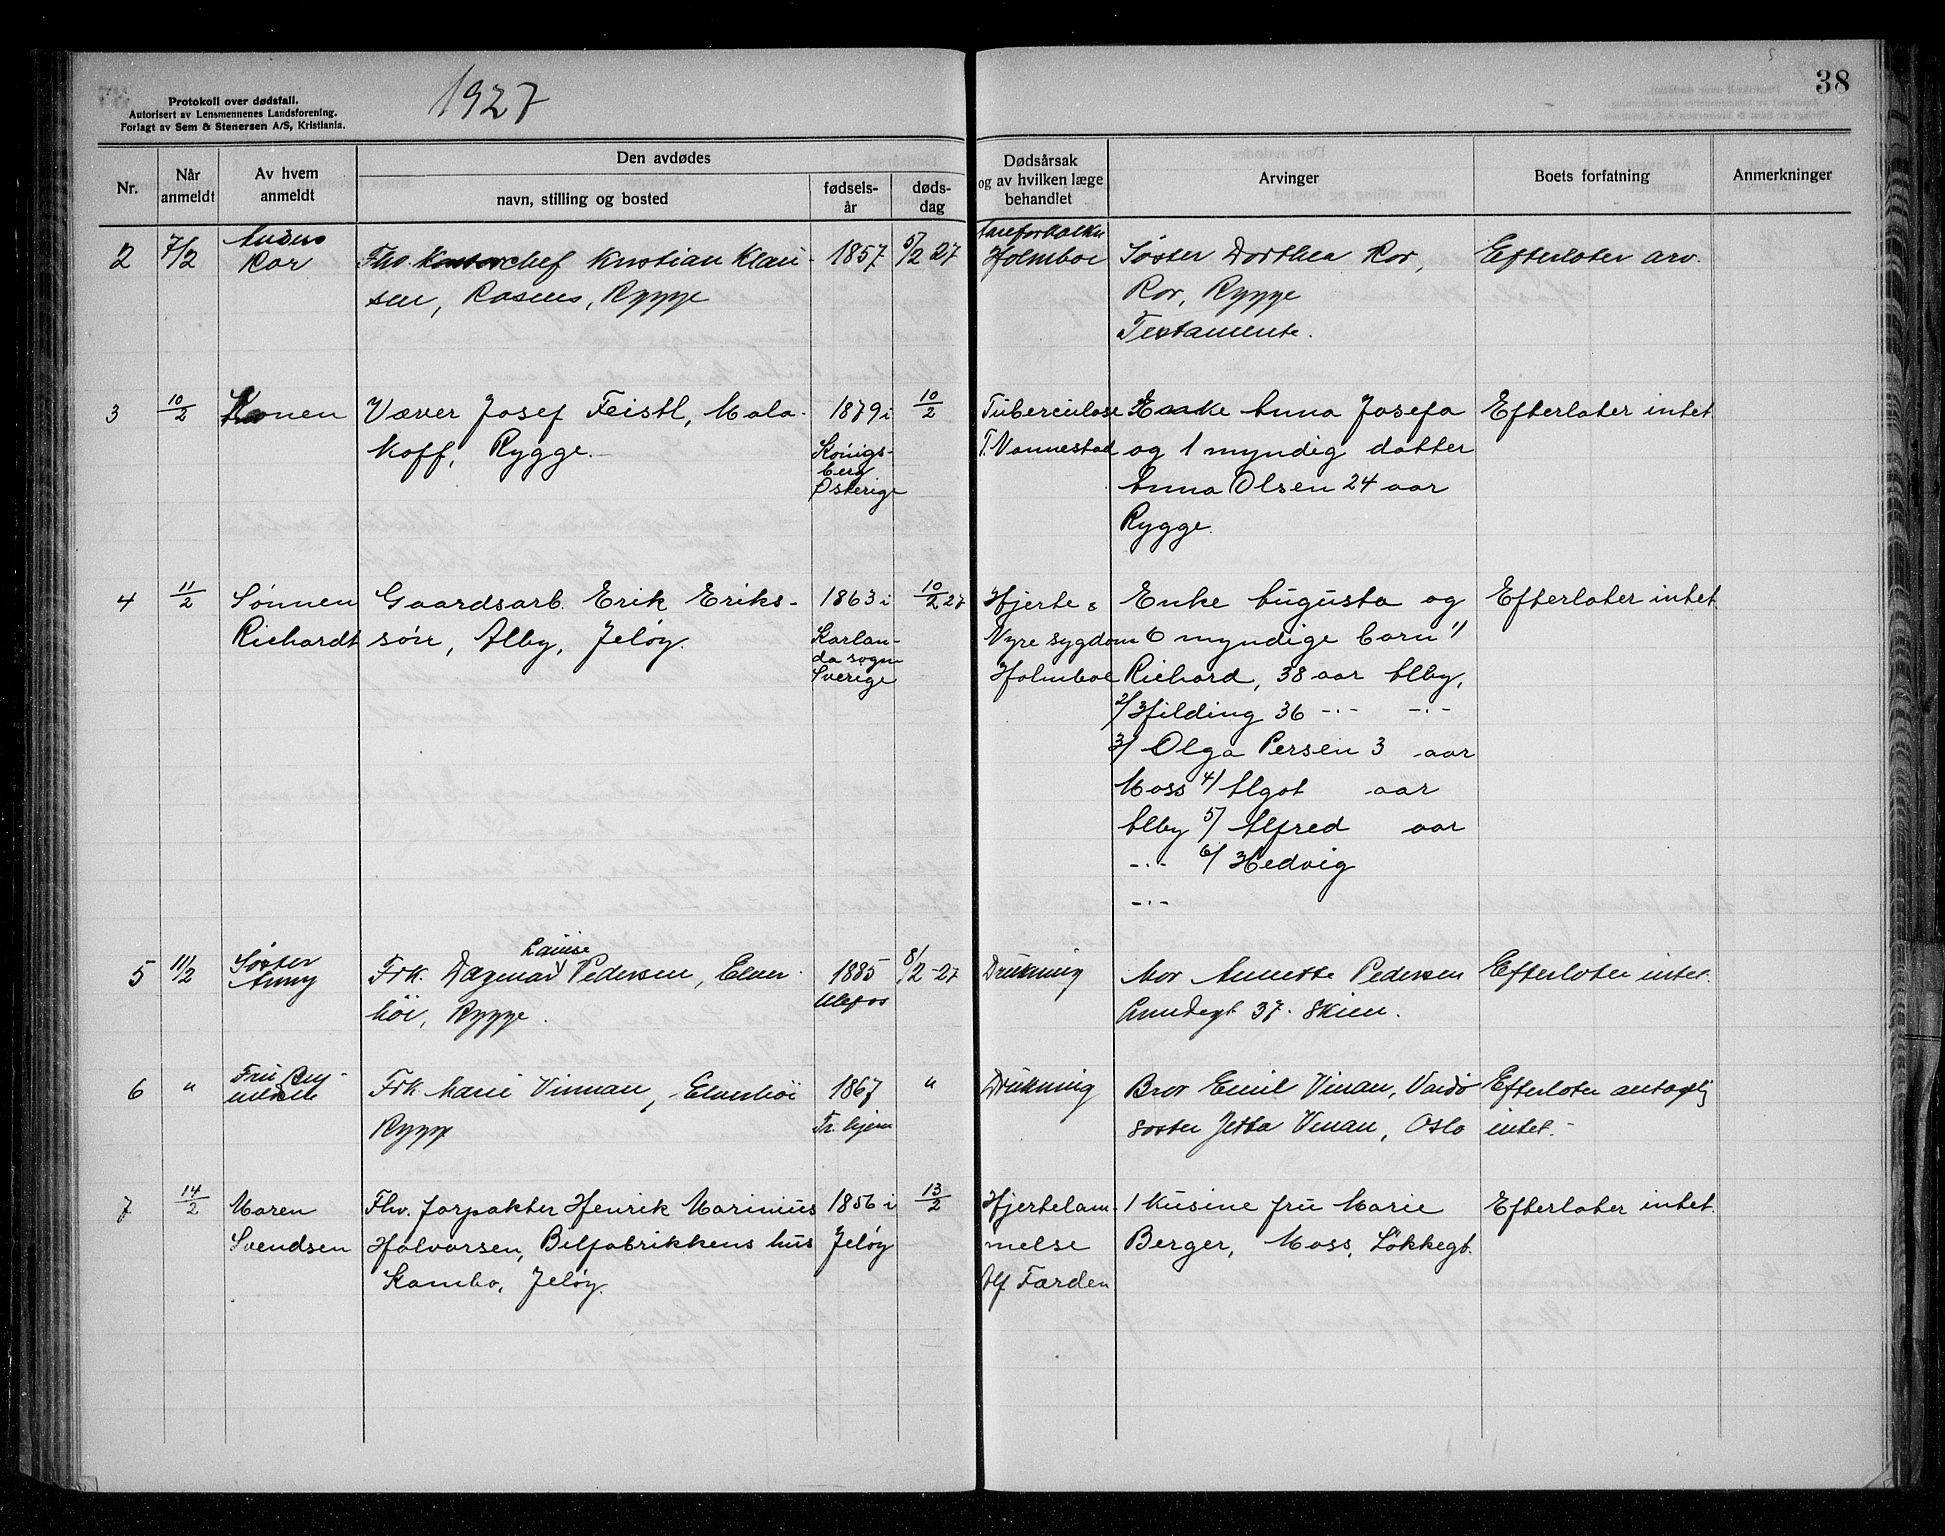 1927
38
Protokoll over dødsfall.
Autorisert av Lensmennenes Landsforening.
Forlagt av Sem & Stenersen A/S, Kristiania.
Nr.
Når anmeldt
Av hvem anmeldt
Den avdødes
navn, stilling og bosted
fødsels-år
døds-dag
Dødsårsak og av hvilken læge behandlet
Arvinger
Boets forfatning
Anmerkninger
2 7/2 Anders Ror
Fhv. Kontorchef Kristian Klau-
sen, Rosens, Rygge
1857 5/2 27
Aareforkalkn
Holmboe
Søster Dorthea Ror,
Ror, Rygge
Testamente.
Efterlater arv.
3 10/2 Konen
Væver Josef Feistl, Mala-
koff, Rygge.
1879 i
Königs-
berg
Østerige
10/2
Tuberculose
T. Vannestad
Enke Anna Josefa
og 1 myndig datter
Anna Olsen 24 aar
Rygge.
Efterlater intet
4 11/2 Sønnen
Richardt
Gaardsarb. Erik Eriks-
sön, Alby, Jeløy.
1863 i
Karlan-
da sogn
Sverige
10/2 27
Hjerte &
Nyre sygdom
Holmboe
Enke Augusta og
6 myndige barn 1/
Richard, 38 aar Alby,
2/ Hilding 36 -"- -"-
3/ Olga Persen 3 aar
Moss 4/ Algot aar
Alby 5/ Alfred aar
-"- 6/ Hedvig
-"-
Efterlater intet
5 11/2 Søster
Anny
Frk. Dagmar Louise Pedersen, Elver-
höi, Rygge.
1885
Ulefos
8/2 -27
Drukning
Mor Annette Pedersen
Amundsgt 37. Skien.
Efterlater intet.
6 " Fru
Frk Marie Vinnan, Elverhöi
Rygge
1867
Tr. hjem
"
Drukning
Bror Emil Vinan, Vardö
søster Jetta Vinan, Oslo
Efterlater antaglig
intet.-
7 14/2 Maren
Svendsen
Fhv. forpakter Henrik Marinius
Halvorsen, Belfabrikkens hus
Kambo, Jeløy.
1856 i
Jeløy
13/2
Hjertelam-
melse
Alf Færden
1 kusine fru Marie
Berger, Moss, Løkkegt.
Efterlater intet.